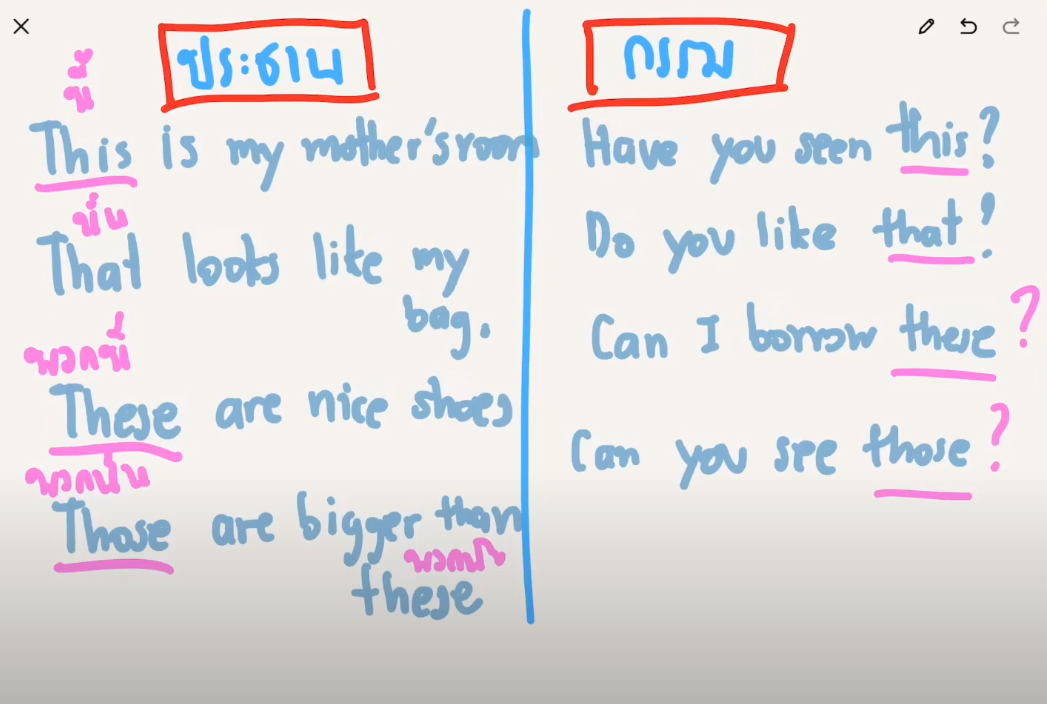 ประธาน
นี่
This is my mother's room
นั่น
That looks like my
bag.
พวกนี้
These are nice shoes
พวกนั้น
Those are bigger than
these
กรรม
Have you seen this?
Do you like that?
Can I borrow these?
Can you see those?